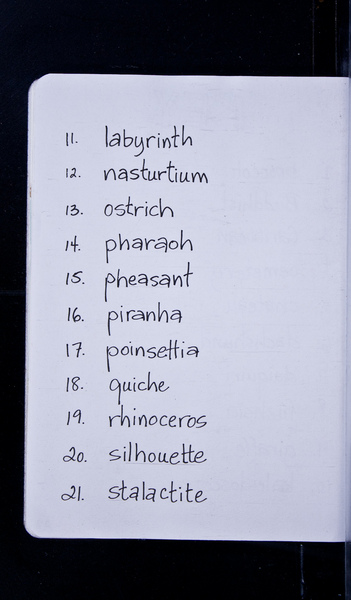 11. labyrinth
12. nasturtium
13. ostrich
14. pharaoh
15. pheasant
16. piranha
17. poinsettia
18. quiche
19. rhinoceros
20. silhouette
21. stalactite